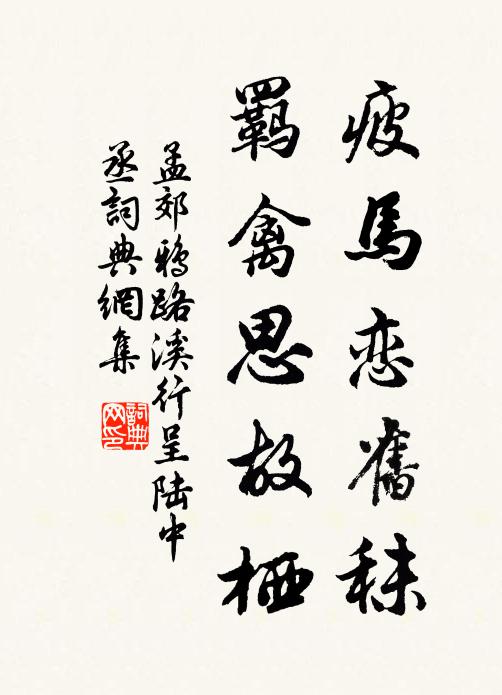 疲馬恋舊秣
羈禽思故栖
孟郊鴉路溪行呈陆中
丞詞典網集
詞典网印